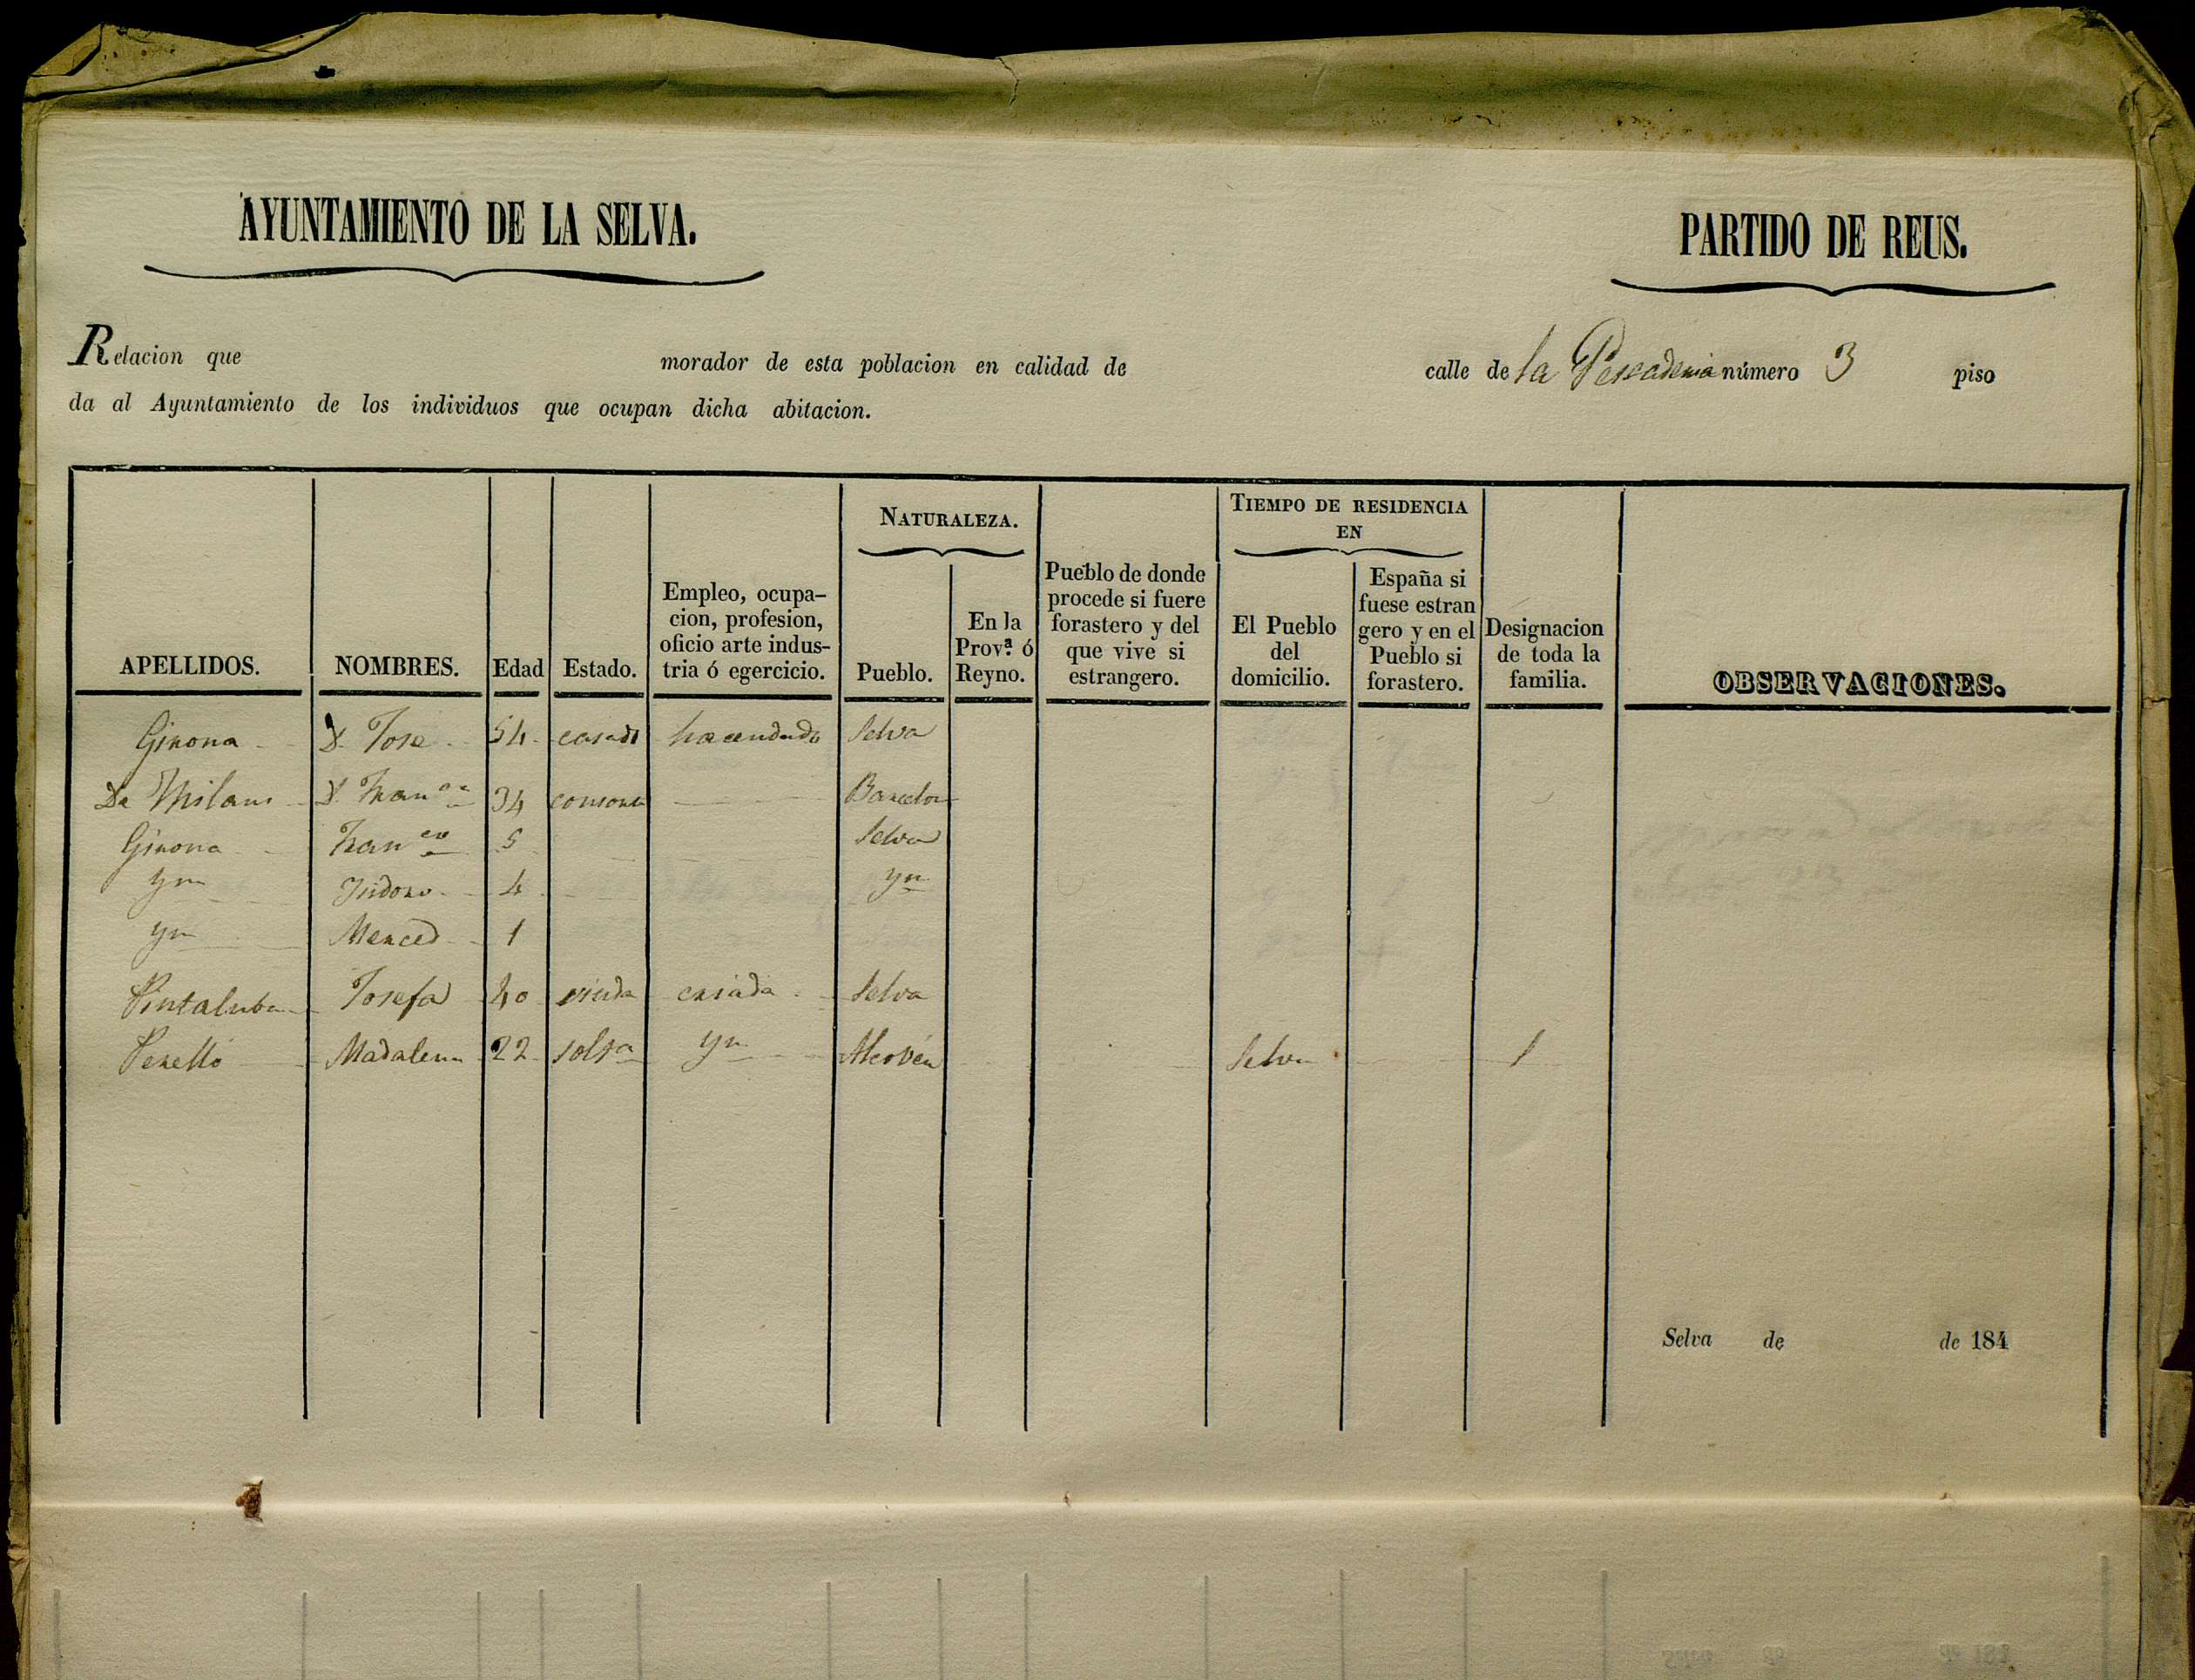 AYUNTAMIENTO DE LA SELVA.
PARTIDO DE REUS.
Relacion que morador de esta poblacion en calidad de calle de la Pescaderia número 3 piso
da al Ayuntamiento de los individuos que ocupan dicha abitacion.
APELLIDOS.
NOMBRES.
Edad
Estado.
Empleo, ocupa-
cion, profesion,
oficio arte indus-
tria ó egercicio.
NATURALEZA.
Pueblo.
En la
Prov.ª ó
Reyno.
Pueblo de donde
procede si fuere
forastero y del
que vive si
estrangero.
TIEMPO DE RESIDENCIA
EN
El Pueblo
del
domicilio.
España si
fuese estran
gero y en el
Pueblo si
forastero.
Designacion
de toda la
familia.
OBSERVACIONES.
Girona D. Jose 54 casado hacendado Selva
De Milans D. Fran.ca 34 consorte Barcelona
Girona Fran.co 5 Selva
Ym Isidoro 4 Ym
Ym Merced 1
Pintaluba Josefa 40 viuda criada Selva
Perelló Madalena 22 solt.a Ym Alcovér Selva 1
Selva de de 184